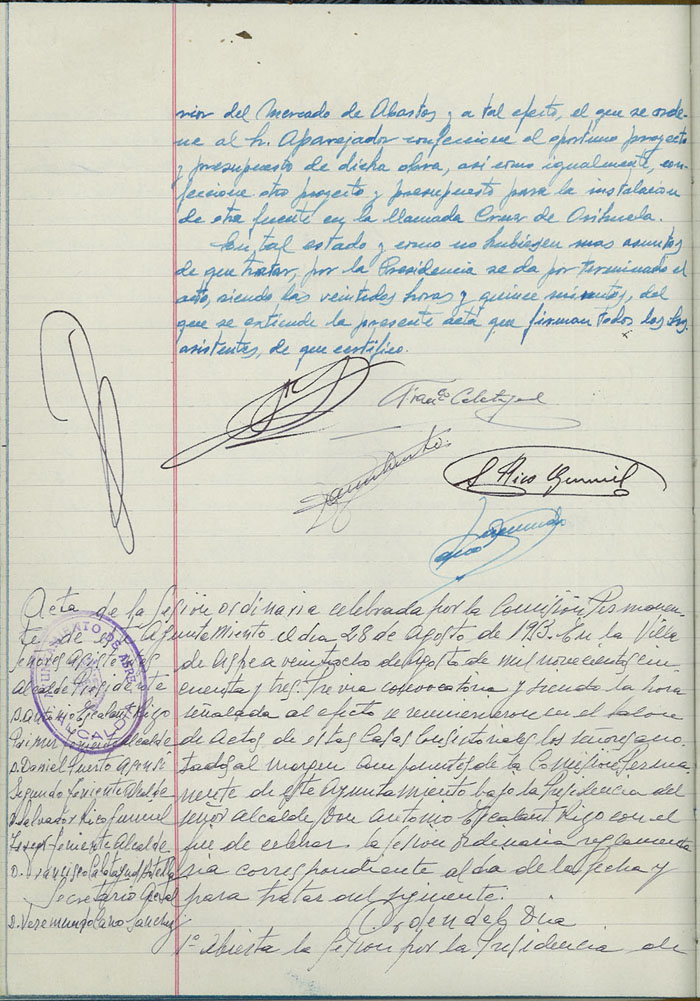 rior del Mercado de Abastos y a tal efecto, el que se orde-
ne al Sr. Aparejador confeccione el oportuno proyecto
y presupuesto de dicha obra, así como igualmente, con-
feccione otro proyecto y presupuesto para la instalación
de otra fuente en la llamada Cruz de Orihuela.
En tal estado y como no hubiesen mas asuntos
de que tratar, por la Presidencia se da por terminado el
acto, siendo las veintidos horas y quince minutos, del
que se extiende la presente acta que firman todos los Srs.
asistentes, de que certifico.
Franco Calatayud
S. Rico Gumiel
Acta de la Sesión ordinaria celebrada por la Comisión Permanen-
te de este Ayuntamiento el día 28 de Agosto de 1953. En la Villa
Señores Asistentes
Alcalde Presidente
D. Antonio Escalant Higo
Primer Teniente Alcalde
D. Daniel Puerto
Segundo Teniente Alcalde
D. Salvador Rico Gumiel
Tercer Teniente Alcalde
D. Francisco Calatayud
Secretario Gral
D. Veremundo Cano Sanchez
de Aspe a veintiocho de Agosto de mil novecientos cin-
cuenta y tres. Previa convocatoria y siendo la hora
señalada al efecto se reunieron en el Salon
de Actos de estas Casas Consistoriales los señores ano-
tados al margen componentes de la Comisión Perma-
nente de este Ayuntamiento bajo la Presidencia del
señor Alcalde Don Antonio Escalant Higo con el
fin de celebrar la sesion ordinaria reglamenta
ria correspondiente al dia de la fecha y
para tratar del siguiente.
Orden del Dia
1º Abierta la Sesion por la Presidencia de
AYUNTAMIENTO DE ASPE
ALCALDIA